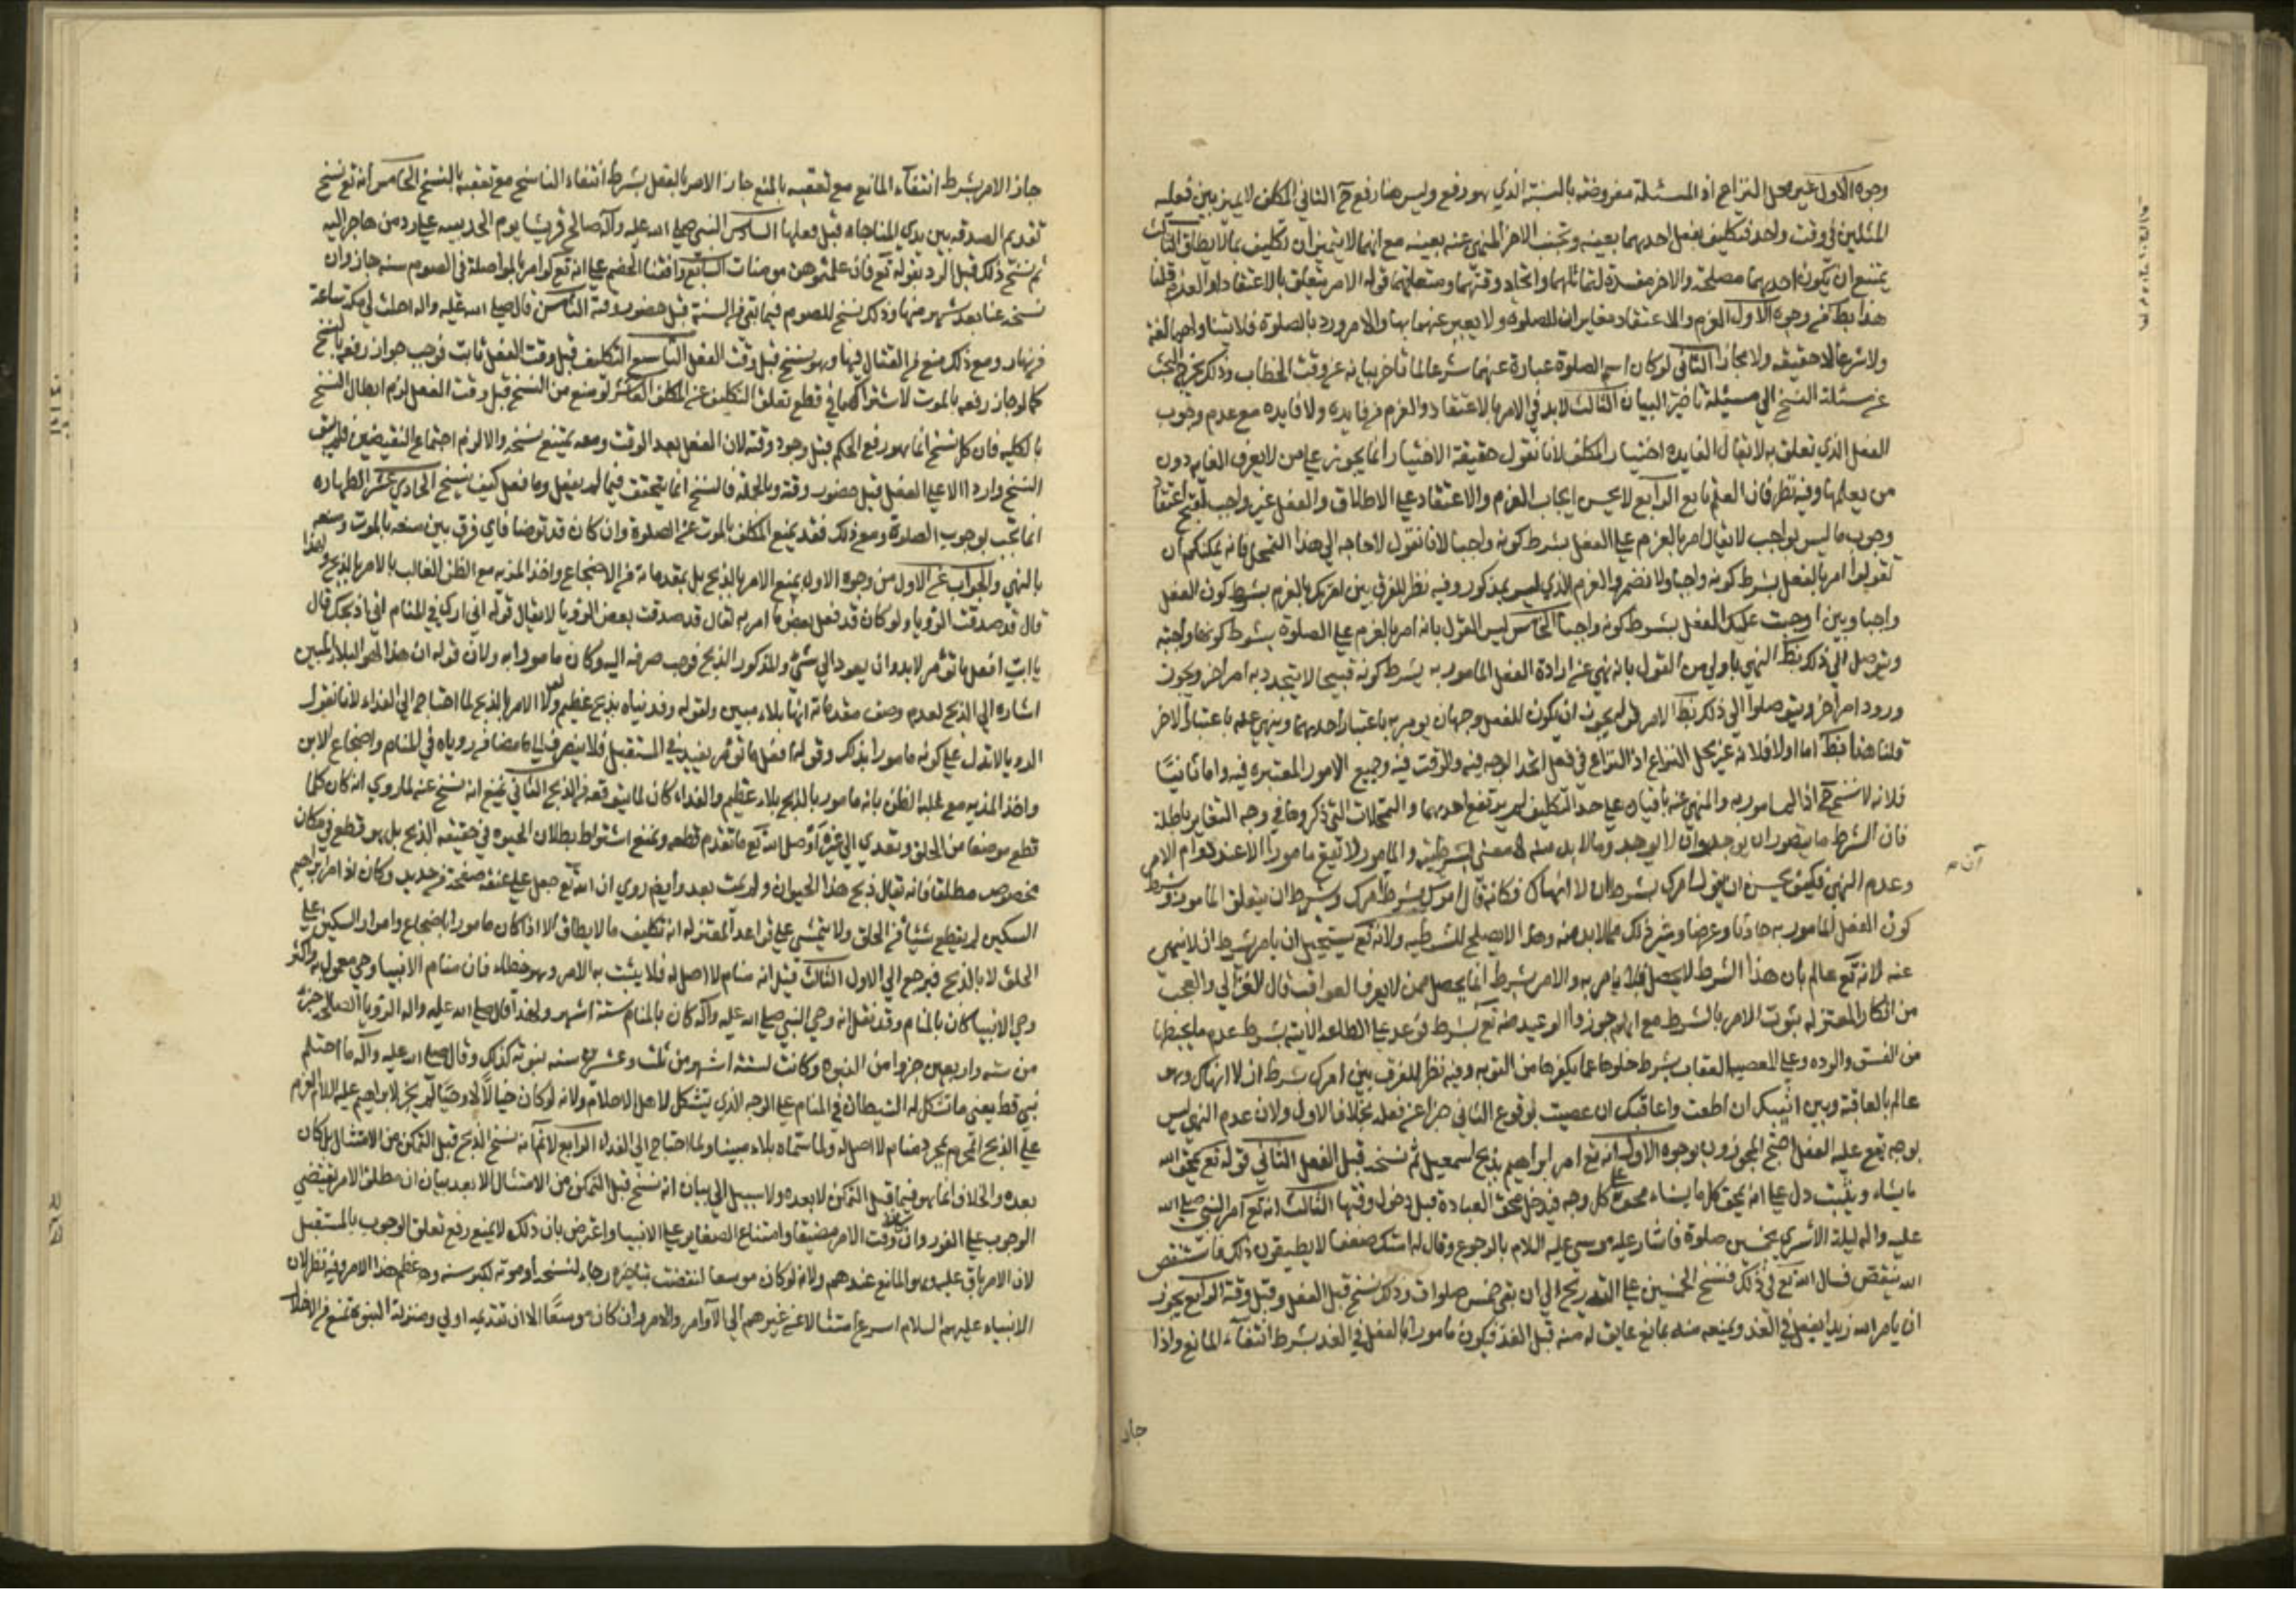 وجوه الاول غير محل النزاع اذ المسئلة مفروضة بالنسبة الذي هو رفع وليس هنا رفع ح الثاني المكلف لا يميز بين فعليه
المثلين في وقت واحد فتكليف بفعل احدهما بعينه وتجنب الاخر المنهي عنه بعينه مع انهما لا يتميزان تكليف بما لا يطاق الثالث
يمتنع ان يكون احدهما مصلحة والاخر مفسدة لتماثلهما واتحاد وقتهما ومتعلقهما قوله الامر يتعلق بالاعتقاد او العزم قلنا
هذا بط من وجوه الاول العزم والاعتقاد مغايران للصلوة ولا يعبر عنهما بها والامر ورد بالصلوة فلا يتناولهما لغة
ولا شرعا لا حقيقة ولا مجازا الثاني لو كان اسم الصلوة عبارة عنهما شرعا لما تاخر بيانه عن وقت الخطاب وذلك يخرج البحث
عن مسئلة النسخ الي مسئلة تاخير البيان الثالث لابد في الامر بالاعتقاد والعزم من فايده ولا فايده مع عدم وجوب
الفعل الذي تعلق به لا يقال الفايده اختيار المكلف لانا نقول حقيقة الاختيار انما يجوز علي من لا يعرف الغايه دون
من يعلمها وفيه نظر فان العلم تابع الرابع لا يحسن ايجاب العزم والاعتقاد علي الاطلاق والفعل غير واجب لقبح اعتقاد
وجوب ما ليس بواجب لا يقال امر بالعزم علي الفعل بشرط كونه واجبا لانا نقول لا حاجه الي هذا التمحل فانه يمكنكم ان
تقولوا امر بالفعل بشرط كونه واجبا ولا تضمروا العزم الذي ليس بمذكور وفيه نظر للفرق بين امرتك بالعزم بشرط كون الفعل
واجبا وبين اوجبت عليك الفعل بشرط كونه واجبا الخامس ليس القول بانه امر بالعزم علي الصلوة بشرط كونها واجبة
ويتوصل الي ذلك بط النهي باولي من القول بانه نهي عن ارادة الفعل المامور به بشرط كونه قبيحا لا يتجدد به امر اخر ويجوز
ورود امر اخر ويتوصلوا الي ذلك بط الامر قوله يجوز ان يكون للفعل وجهان يومر به باعتبار احدهما وينهي عنه باعتبار الاخر
قلنا هذا بط اما اولا فلانه غير محل النزاع اذ النزاع في فعل اتحد الوجه فيه والوقت فيه وجميع الامور المعتبره فيه واما ثانيا
فلانه لا نسخ ح اذ المامور به والمنهي عنه باقيان علي حد التكليف لم يرتفع احدهما والتمحلات التي ذكروها في وجه التغاير باطلة
فان الشرط ما يتصور ان يوجد وان لا يوجد وما لا بد منه لا معني لشرطيته والمامور لا يقع مامورا الا عند دوام الامر
وعدم النهي فكيف يحسن ان يقول امرك بشرط ان لا انهاك فكانه قال امرك بشرط امرك وبشرط ان يتعلق المامور وبشرط
كون الفعل المامور به حادثا وعرضا وغير ذلك مما لا بد منه وهذا لا يصلح للشرطيه ولانه تع يستحيل ان يامر بشرط ان لا ينهي
عنه لانه تع عالم بان هذا الشرط لا يحصل فلا يامر به والامر بشرط انما يحصل ممن لا يعرف العواقب قال الغزالي والعجب
من انكار المعتزله ثبوت الامر بالشرط مع انهم جوزوا الوعيد منه تع بشرط فوعد علي الطاعه الاثابه بشرط عدم ما يحبطها
من الفسق والرده وعلي المعصيه العقاب بشرط خلوها عما يكفرها من التوبه وفيه نظر للفرق بين امرك بشرط ان لا انهاك وهو
عالم بالعاقبة وبين اثيبك ان اطعت واعاقبك ان عصيت لوقوع الثاني جزاء عن فعله بخلاف الاول ولان عدم النهي ليس
بوجه يقع عليه الفعل احتج المجوزون بوجوه الاول انه تع امر ابراهيم بذبح اسمعيل ثم نسخه قبل الفعل الثاني قوله تع يمحو الله
ما يشاء ويثبت دل علي انه يمحو كل ما يشاء محوه علي كل وجه فيدخل محو العبادة قبل دخول وقتها الثالث انه تع امر النبي صلي الله
عليه واله ليلة الاسري بخمسين صلوة فاشار عليه موسي عليه السلام بالرجوع وقال له امتك ضعفا لا يطيقون ذلك فاستنقص
الله ينقص فسال الله تع في ذلك فنسخ الخمسين علي التدريج الي ان بقي خمس صلوات وذلك نسخ قبل الفعل وقبل وقته الرابع يجوز
ان يامر الله زيدا بفعل في الغد ويمنعه منه بمانع عايق له منه قبل الغد فيكون مامورا بالفعل في الغد بشرط انتفاء المانع واذا
جاز
جاز الامر بشرط انتفاء المانع مع تعقبه بالمنع جاز الامر بالفعل بشرط انتفاء الناسخ مع تعقبه بالنسخ الخامس انه تع نسخ
تقديم الصدقه بين يدي المناجاه قبل فعلها السادس النبي صلي الله عليه وآله صالح قريشا يوم الحديبيه علي رد من هاجر اليه
ثم نسخ ذلك قبل الرد بقوله تع فان علمتموهن مومنات السابع وافقنا الخصم علي انه تع لو امر بالمواصلة في الصوم سنه جاز وان
نسخه عنا بعد شهر منها وذلك نسخ للصوم فيما بقي من السنة قبل حضور وقته الثامن قال صلي الله عليه واله احلت لي مكة ساعة
من نهار ومع ذلك منع من القتال فيها وهو نسخ قبل وقت الفعل التاسع التكليف قبل وقت الفعل ثابت فوجب جواز رفعه بالنسخ
كما لو جاز رفعه بالموت لاشتراكهما في قطع تعلق التكليف عن المكلف العاشر لو منع من النسخ قبل وقت الفعل لزم ابطال النسخ
بالكليه فان كل نسخ انما هو رفع الحكم قبل وجود وقته لان الفعل بعد الوقت ومعه يمتنع نسخه والا لزم اجتماع النقيضين فلم يبق
النسخ واردا الا علي الفعل قبل حضور وقته وبالجمله فالنسخ انما يتحقق فيما لم يفعل وما فعل كيف ينسخ الحادي عشر الطهاره
انما تجب لوجوب الصلوة ومع ذلك فقد يمنع المكلف بالموت عن الصلوة وان كان قد توضا فاي فرق بين منعه بالموت ومنعه
بالنهي والجواب عن الاول من وجوه الاول يمنع الامر بالذبح بل بمقدماته من الاضجاع واخذ المديه مع الظن الغالب بالامر بالذبح ولهذا
قال قد صدقت الرؤيا ولو كان قد فعل بعض ما امر به لقال قد صدقت بعض الرؤيا لا يقال قوله اني اري في المنام اني اذبحك قال
يا ابت افعل ما تؤمر لابد وان يعود الي شئ والمذكور الذبح فوجب صرفه اليه وكان مامورا به ولان قوله ان هذا لهو البلاء المبين
اشاره الي الذبح لعدم وصف مقدماته انها بلاء مبين ولقوله وفديناه بذبح عظيم ولولا الامر بالذبح لما احتاج الي الفداء لانا نقول
الرويا لا تدل علي كونه مامورا بذلك وقوله افعل ما تؤمر يفيد في المستقبل فلا ينصرف الي ما مضا من روياه في المنام واضجاع الابن
واخذ المديه مع غلبة الظن بانه مامور بالذبح بلاء عظيم والفداء كان لما يتوقعه من الذبح الثاني نمنع انه نسخ عنه لما روي انه كان كلما
قطع موضعا من الحلق وتعدي الي غيره اوصل الله تع ما تقدم قطعه ونمنع اشتراط بطلان الحيوه في حقيقه الذبح بل هو قطع في مكان
مخصوص مطلقا فانه يقال ذبح هذا الحيوان ولم يمت بعد وايض روي ان الله تع جعل علي عنقه صفحة من حديد وكان اذا امر ابراهيم
السكين لم يقطع شيئا من الحلق ولا يتمشي علي قواعد المعتزله انه تكليف ما لا يطاق الا اذا كان مامورا باضجاع وامرار السكين علي
الحلق لا بالذبح فيرجع الي الاول الثالث قيل انه منام لا اصل له فلا يثبت به الامر وهو خطاء فان منام الانبيا وحي معمول به واكثر
وحي الانبيا كان بالمنام وقد نقل انه وحي النبي صلي الله عليه وآله كان بالمنام ستة اشهر ولهذا قال صلي الله عليه واله الرويا الصالحه جزء
من سته واربعين جزوا من النبوه وكانت لستة اشهر من ثلث وعشرين سنه نبوته كذلك وقال صلي الله عليه وآله ما احتلم
نبي قط يعني ما تشكل له الشيطان في المنام علي الوجه الذي يتشكل لاهل الاحلام ولانه لو كان خيالا لا وحيا لم يجز لابراهيم عليه السلام العزم
علي الذبح المحرم بمجرد منام لا اصل له ولما سماه بلاء مبينا ولما احتاج الي الفداء الرابع لانم انه نسخ الذبح قبل التمكن من الامتثال بل كان
بعده والخلاف انما هو فيما قبل التمكن لا بعده ولا سبيل الي بيان انه نسخ قبل التمكن من الامتثال الا بعد بيان ان مطلق الامر يقتضي
الوجوب علي الفور وان وقت الامر مضيقا وامتناع الصغاير علي الانبيا واعترض بان ذلك لا يمنع رفع تعلق الوجوب بالمستقبل
لان الامر باق عليه وهو المانع عندهم ولانه لو كان موسعا لقضت بتاخيره رجاء لنسخه او موته لكبر سنه وعظم هذا الامر وفيه نظر لان
الانبياء عليهم السلام اسرع امتثالا من غيرهم الي الآوامر والامر وان كان موسعا الا ان تقديمه اولي ومنزلة النبوة تمنع من الاخلال